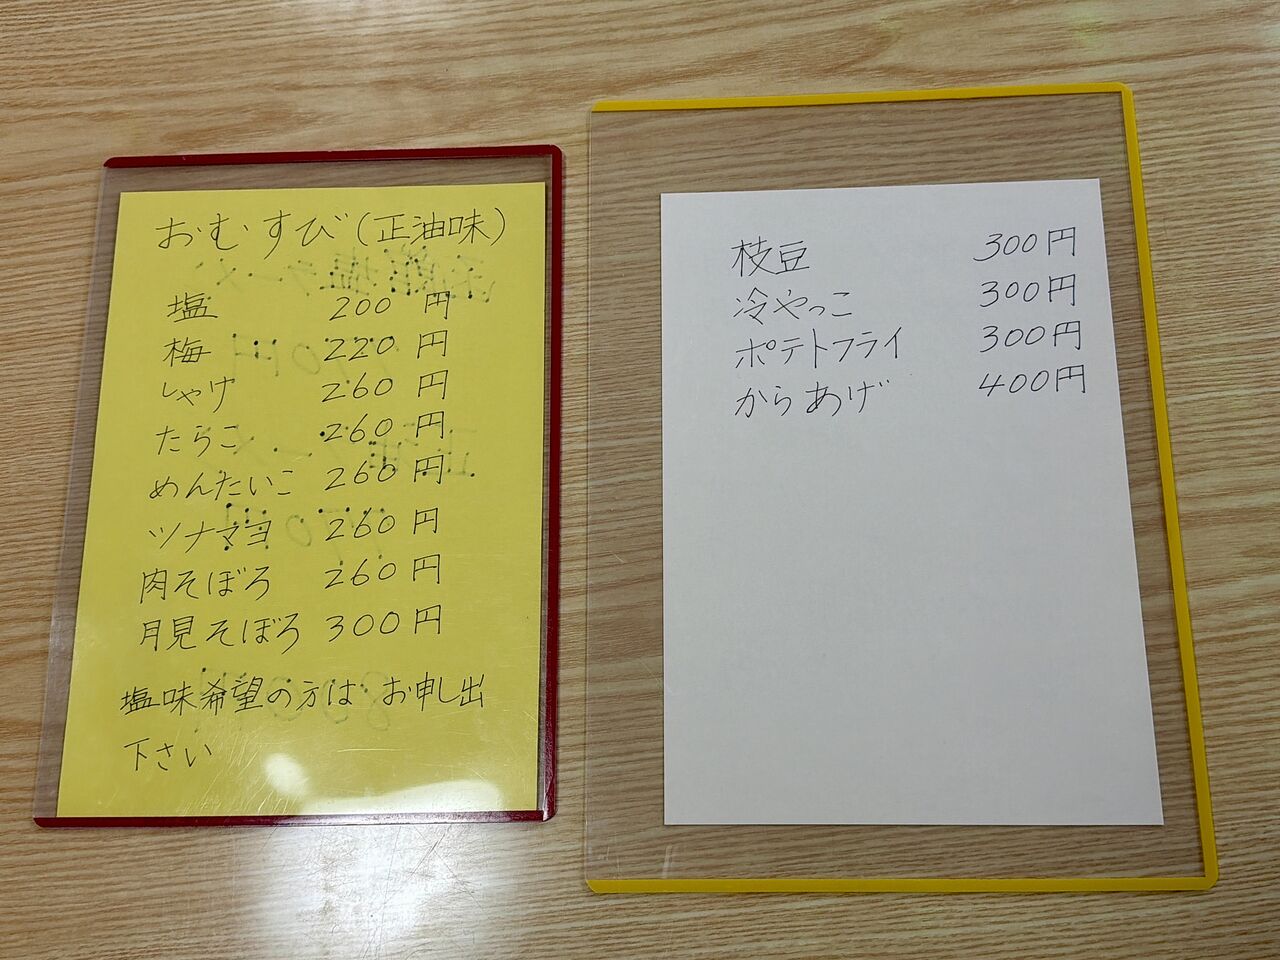 おむすび(正油味)
塩 200 円
梅 220 円
しゃけ 260 円
たらこ 260 円
めんたいこ 260 円
ツナマヨ 260 円
肉そぼろ 260 円
月見そぼろ 300 円
塩味希望の方は お申し出
下さい
枝豆 300円
冷やっこ 300円
ポテトフライ 300円
からあげ 400円